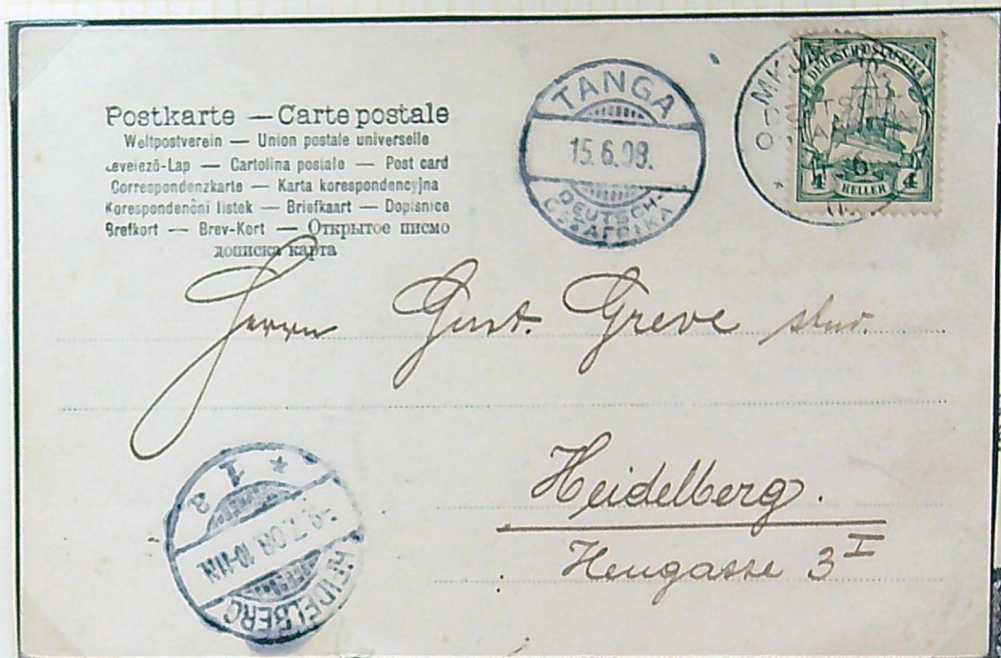 Postkarte — Carte postale
Weltpostverein — Union postale universelle
Levelező-Lap — Cartolina postale — Post card
Correspondenzkarte — Karta korespondencyjna
Korespondenční lístek — Briefkaart — Dopisnice
Brefkort — Brev-Kort — Открытое письмо
дописна карта
TANGA
15.6.08.
DEUTSCH-
OSTAFRIKA
DEUTSCH-OSTAFRIKA
4 HELLER 4
Herrn Gust. Greve stud.
Heidelberg.
Heugasse 3 I
HEIDELBERG
-9.7.08. 10-11N.
* 1 a